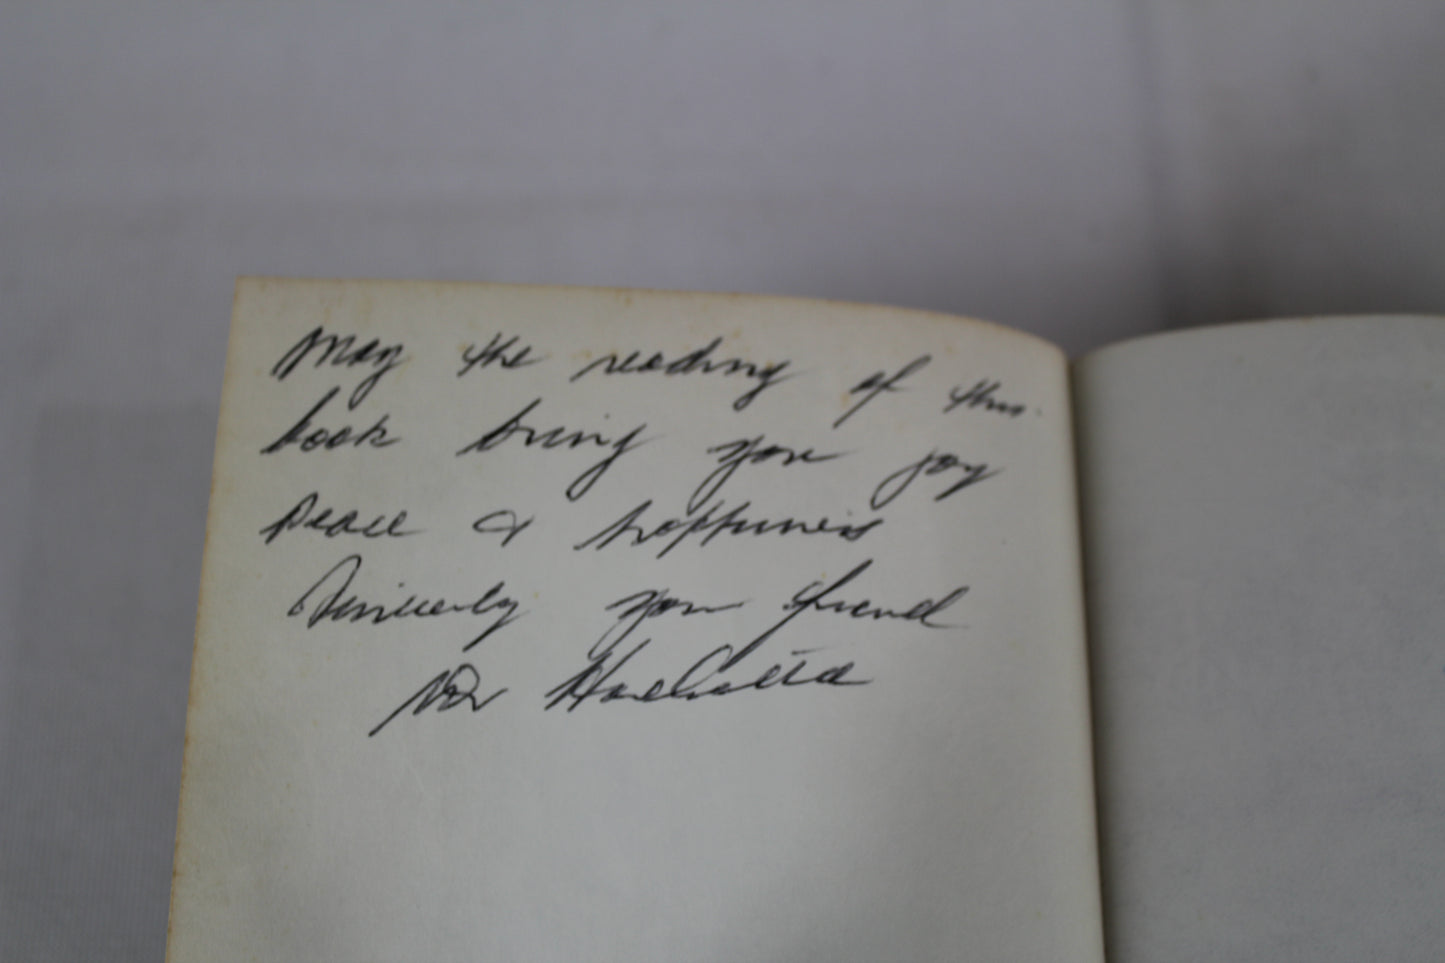 May the reading of this
book bring you joy
peace & happiness
Sincerely your friend